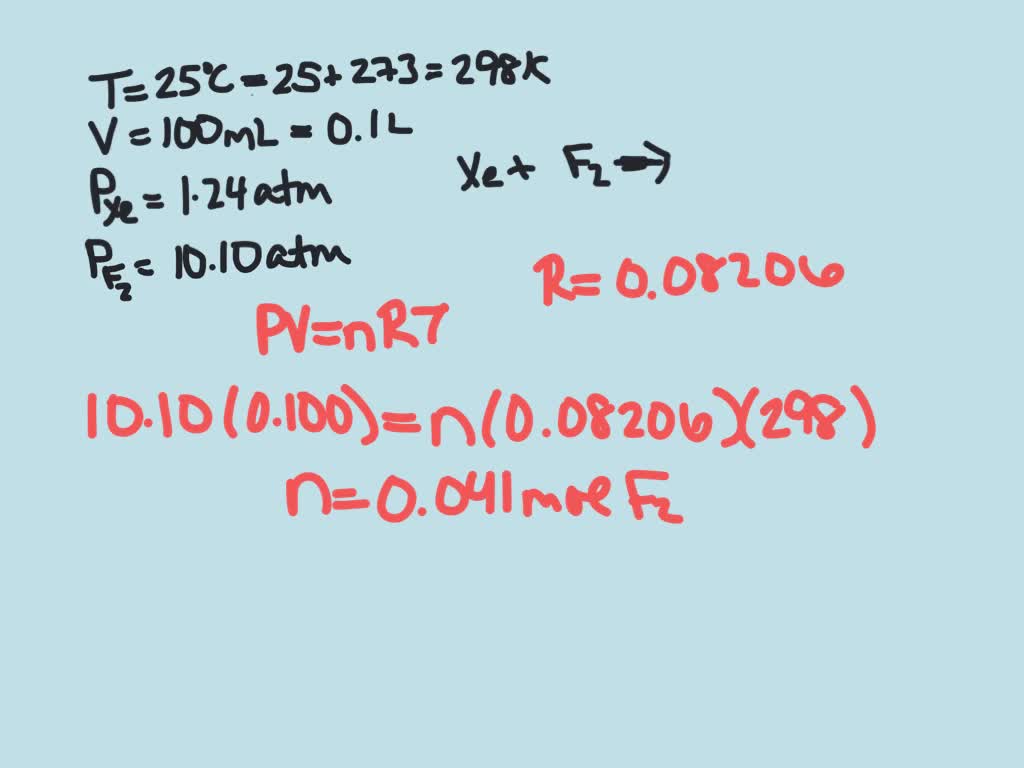 T = 25°C = 25 + 273 = 298 K
V = 100 mL = 0.1 L
P_Xe = 1.24 atm
Xe + F₂ →
P_F₂ = 10.10 atm
R = 0.08206
PV = nRT
10.10 (0.100) = n (0.08206)(298)
n = 0.041 mole F₂